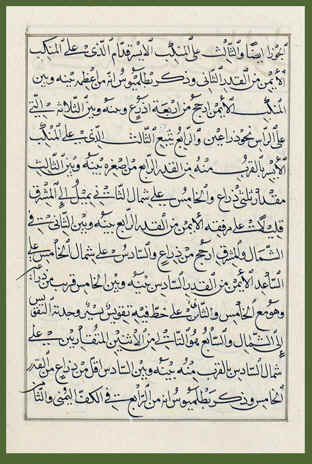 الجوزا ايضا والثالث على المنكب الايسر قدام الذى على المنكب
الأيمن من القدر الثانى وذكر بطلميوس انه من اعظمه بينه وبين
المنكب الأيمن ارجح من اربعة اذرع وبينه وبين الثلاثة التى
على الراس نحو ذراعين والرابع يتبع الثالث الذى على المنكب
الأيسر بالقرب منه من القدر الرابع من اصغره بينه وبين الثالث
مقدار ثلثى ذراع والخامس على شمال الثالث يميل الى المشرق
قليلا على مرفقه الأيمن من القدر الرابع بينه وبين الثانى فى
الشمال والمشرق ارجح من ذراع والسادس على شمال الخامس على
الساعد الأيمن من القدر السادس بينه وبين الخامس قريب من ذراع
وهو مع الخامس والثانى على خط فيه تقويس يسير وحدبة التقويس
الى الشمال والسابع هو التالى من الاثنين المتقاربين على
شمال السادس بالقرب منه بينه وبين السادس اقل من ذراع من القدر
الخامس وذكر بطلميوس انه من الرابع فى الكف اليمنى والثامن